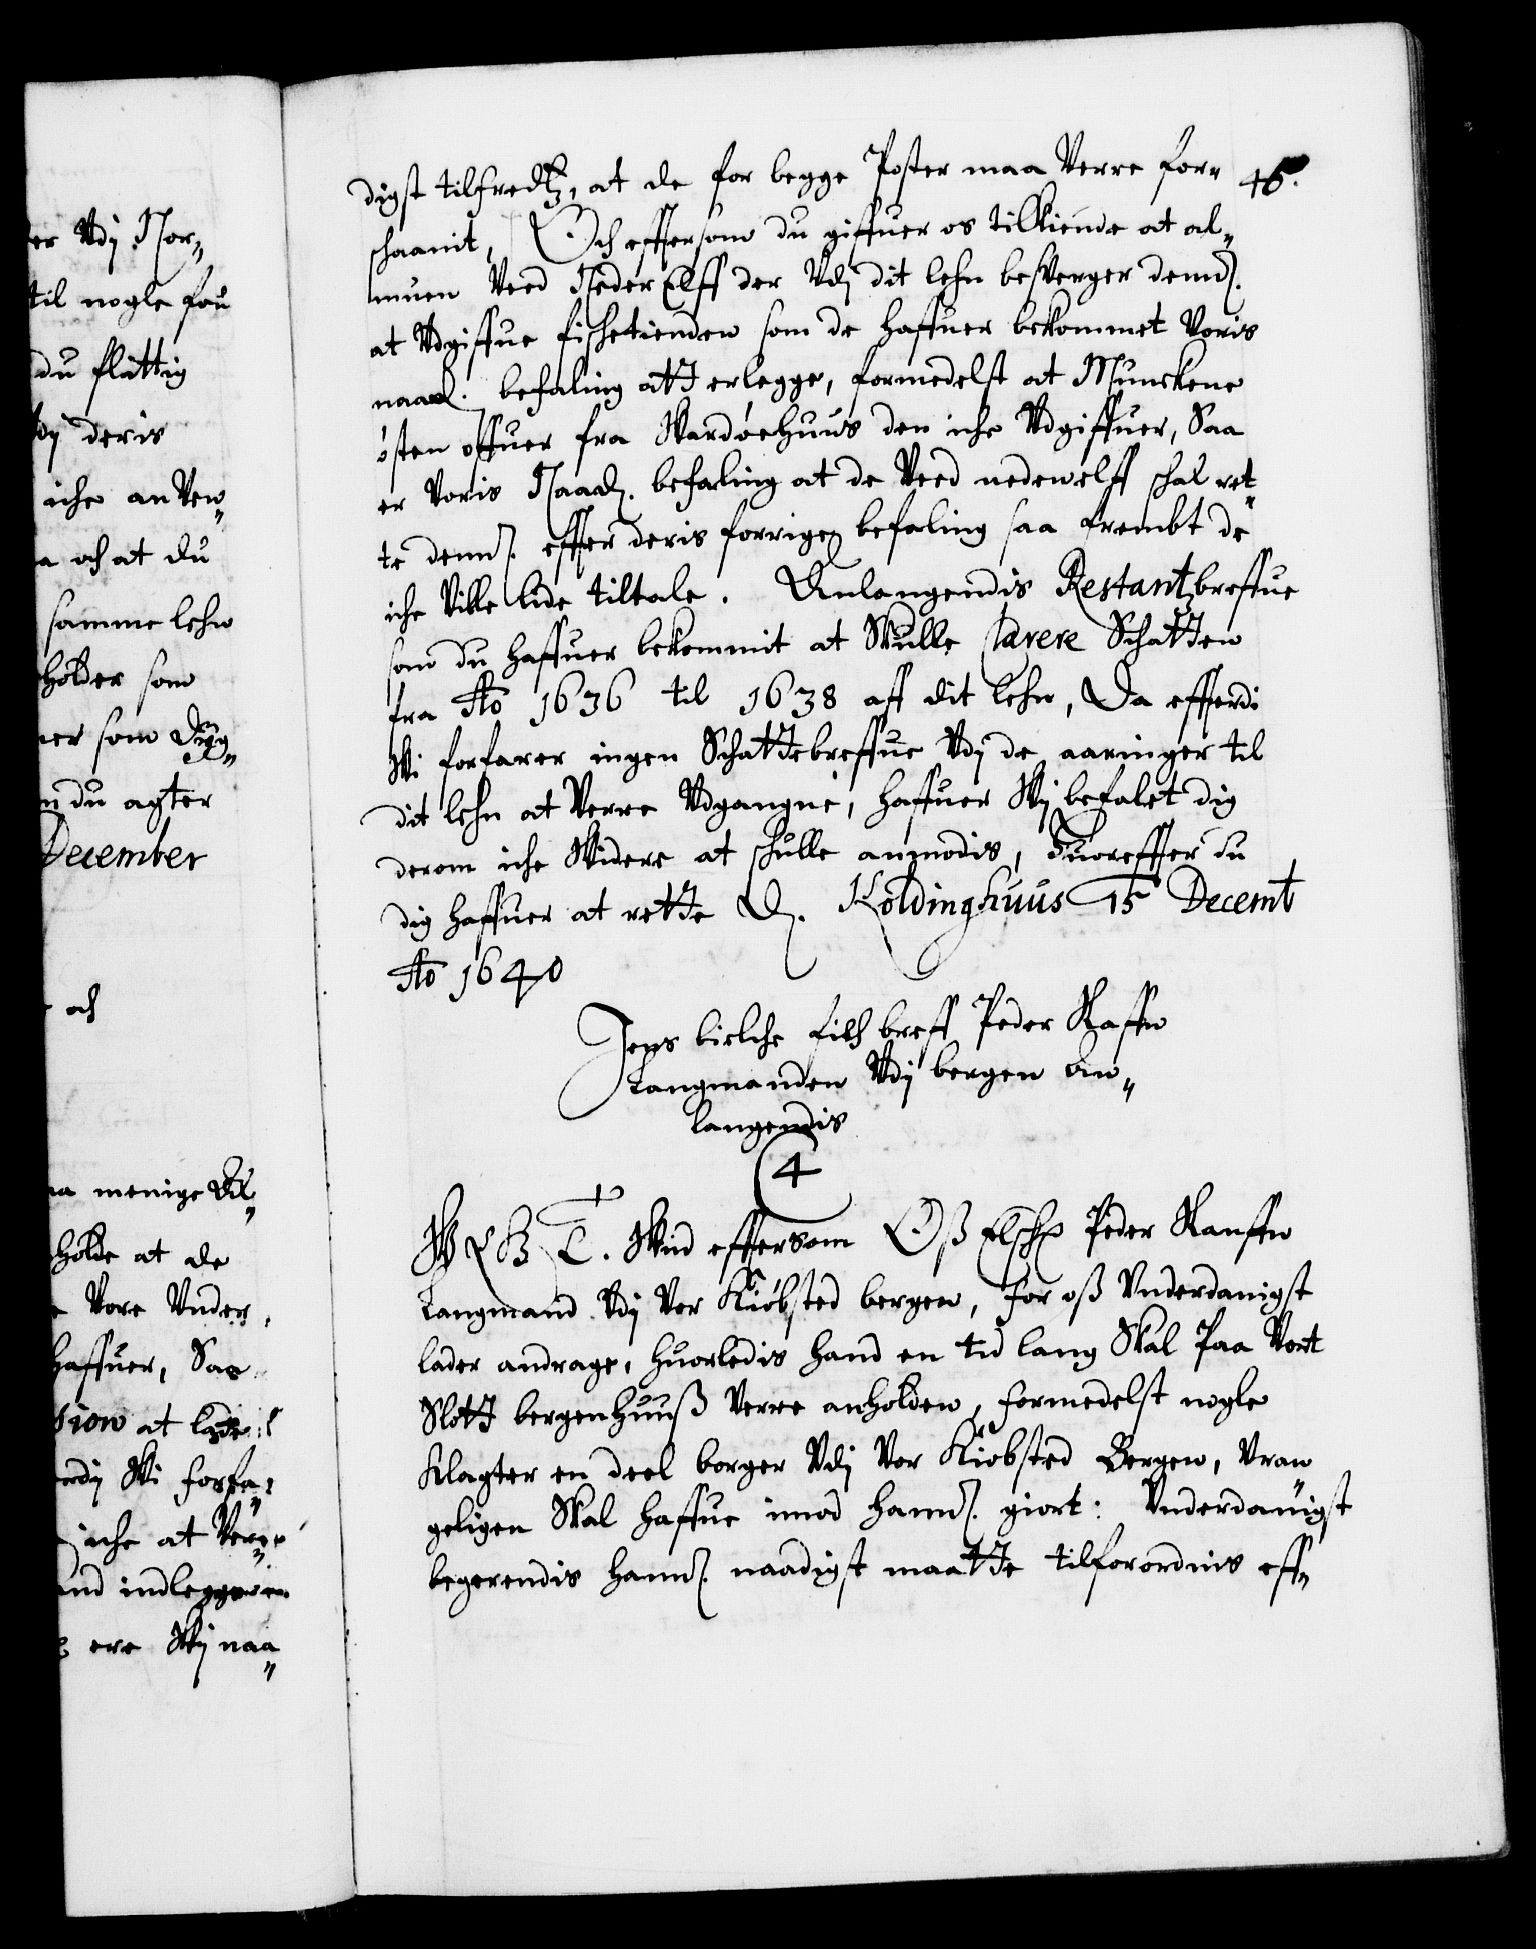 digst tilfredtz, at de for begge Poster maa Verre for„
schaanit, Och effterson du giffuer os tilkiende at al„
muen Veed Neder Elff der Vdj dit lehn besVerger dennd.
at Vdgiffue fischetienden som de haffuer bekommet Voris
naad. befaling att erlegge, formedelst at Munckene
østen offuer fra Wardøehuus den iche Vdgiffuer, Saa
er Voris Naad. befaling at de Veed nedenelff schal ret„
te dennd. effter deris forrige befaling saa frembt de
iche Ville lide tiltale. Anlangendis Restantzbreffue
som du haffuer bekommit at Skulle clarere Schatten
fra Ao 1636 til 1638 aff dit lehn, Da effterdi
Wi forfarer ingen Schattebreffue Vdj de aaringer til
dit lehn at Verre Vdgangne, haffuer Wj befalet dig
derom iche Widere at schulle anmodis, Huoreffter du
dig haffuer at rette D. Koldinghuus 15 Decemt
Ao 1640
Jens bielche fich breff Peder Raffn
Laugmanden Vdj bergen an„
langendis
4
W G B T. Wid effterson Oß Elsch Peder Rauffn
Laugmand Vdj Vor Kiøbsted bergen, for oß Vnderdanigst
lader andrage, huorledis hand en tid lang Skal paa Vort
Slott bergenhuuß Verre anholden, formedelst nogle
Klagter en deel borger Vdj Vor Kiøbsted Bergen, Vran
geligen Skal haffue imod hannd. giort: Vnderdanigst
begerendis hannd. naadigst maatte tilforordnis eff„
er Vdj Nor„
til nogle fou
du flittig
Vdj deris
iche an Ven„
a och at du
samme lehn
holder som
er som
n du agter
December
och
a menige Al„
holde at de
Vore Vnder
haffuer, Saa
sion at lade
erdj Wi forfa„
iche at Verre
and indlegge
ere Wj naa„